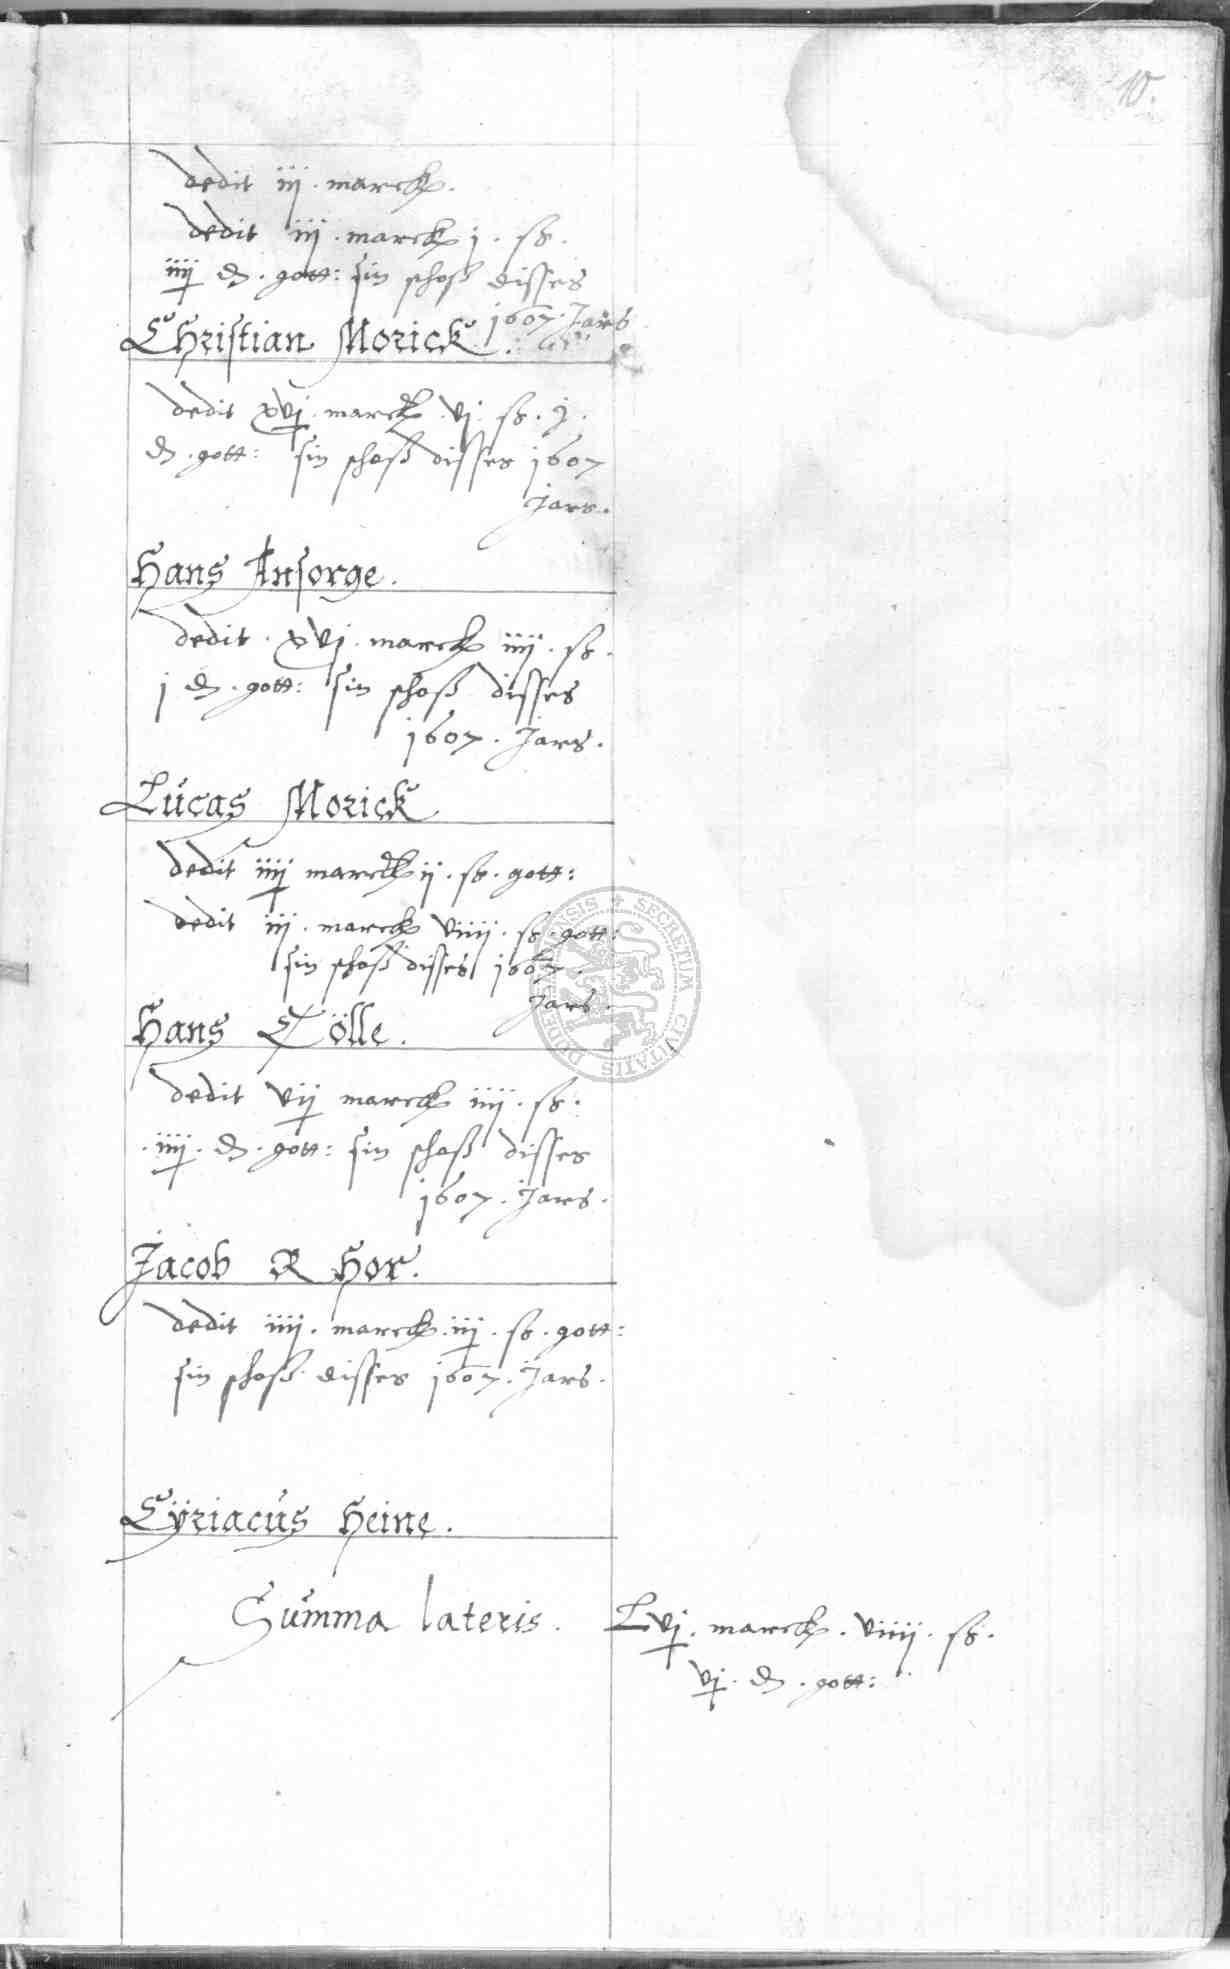 10.
dedit iij . marck .
dedit iij . marck j . ß .
iiij d . gott : sin schoß disses
1607 . Jars
Christian Morick .
dedit xvj . marck . vj . ß . j .
d . gott : sin schoß disses 1607
Jars .
Hans Ansorge .
dedit . xvj . marck iiij . ß .
j d . gott : sin schoß disses
1607 . Jars .
Lucas Morick
dedit iiij marck ij . ß . gott :
dedit iij . marck viiij . ß . gott :
sin schoß disses 1607 .
Jars .
Hans Tölle .
dedit vij marck iiij . ß .
. iiij . d . gott : sin schoß disses
1607 . Jars .
Jacob R Hor .
dedit iiij . marck . iij . ß . gott :
sin schoß disses 1607 . Jars .
Cÿriacus Heine .
Summa lateris . Lvj . marck . viiij . ß .
vj . d . gott :
SECRETUM CIVITATIS DUDERSTADENSIS